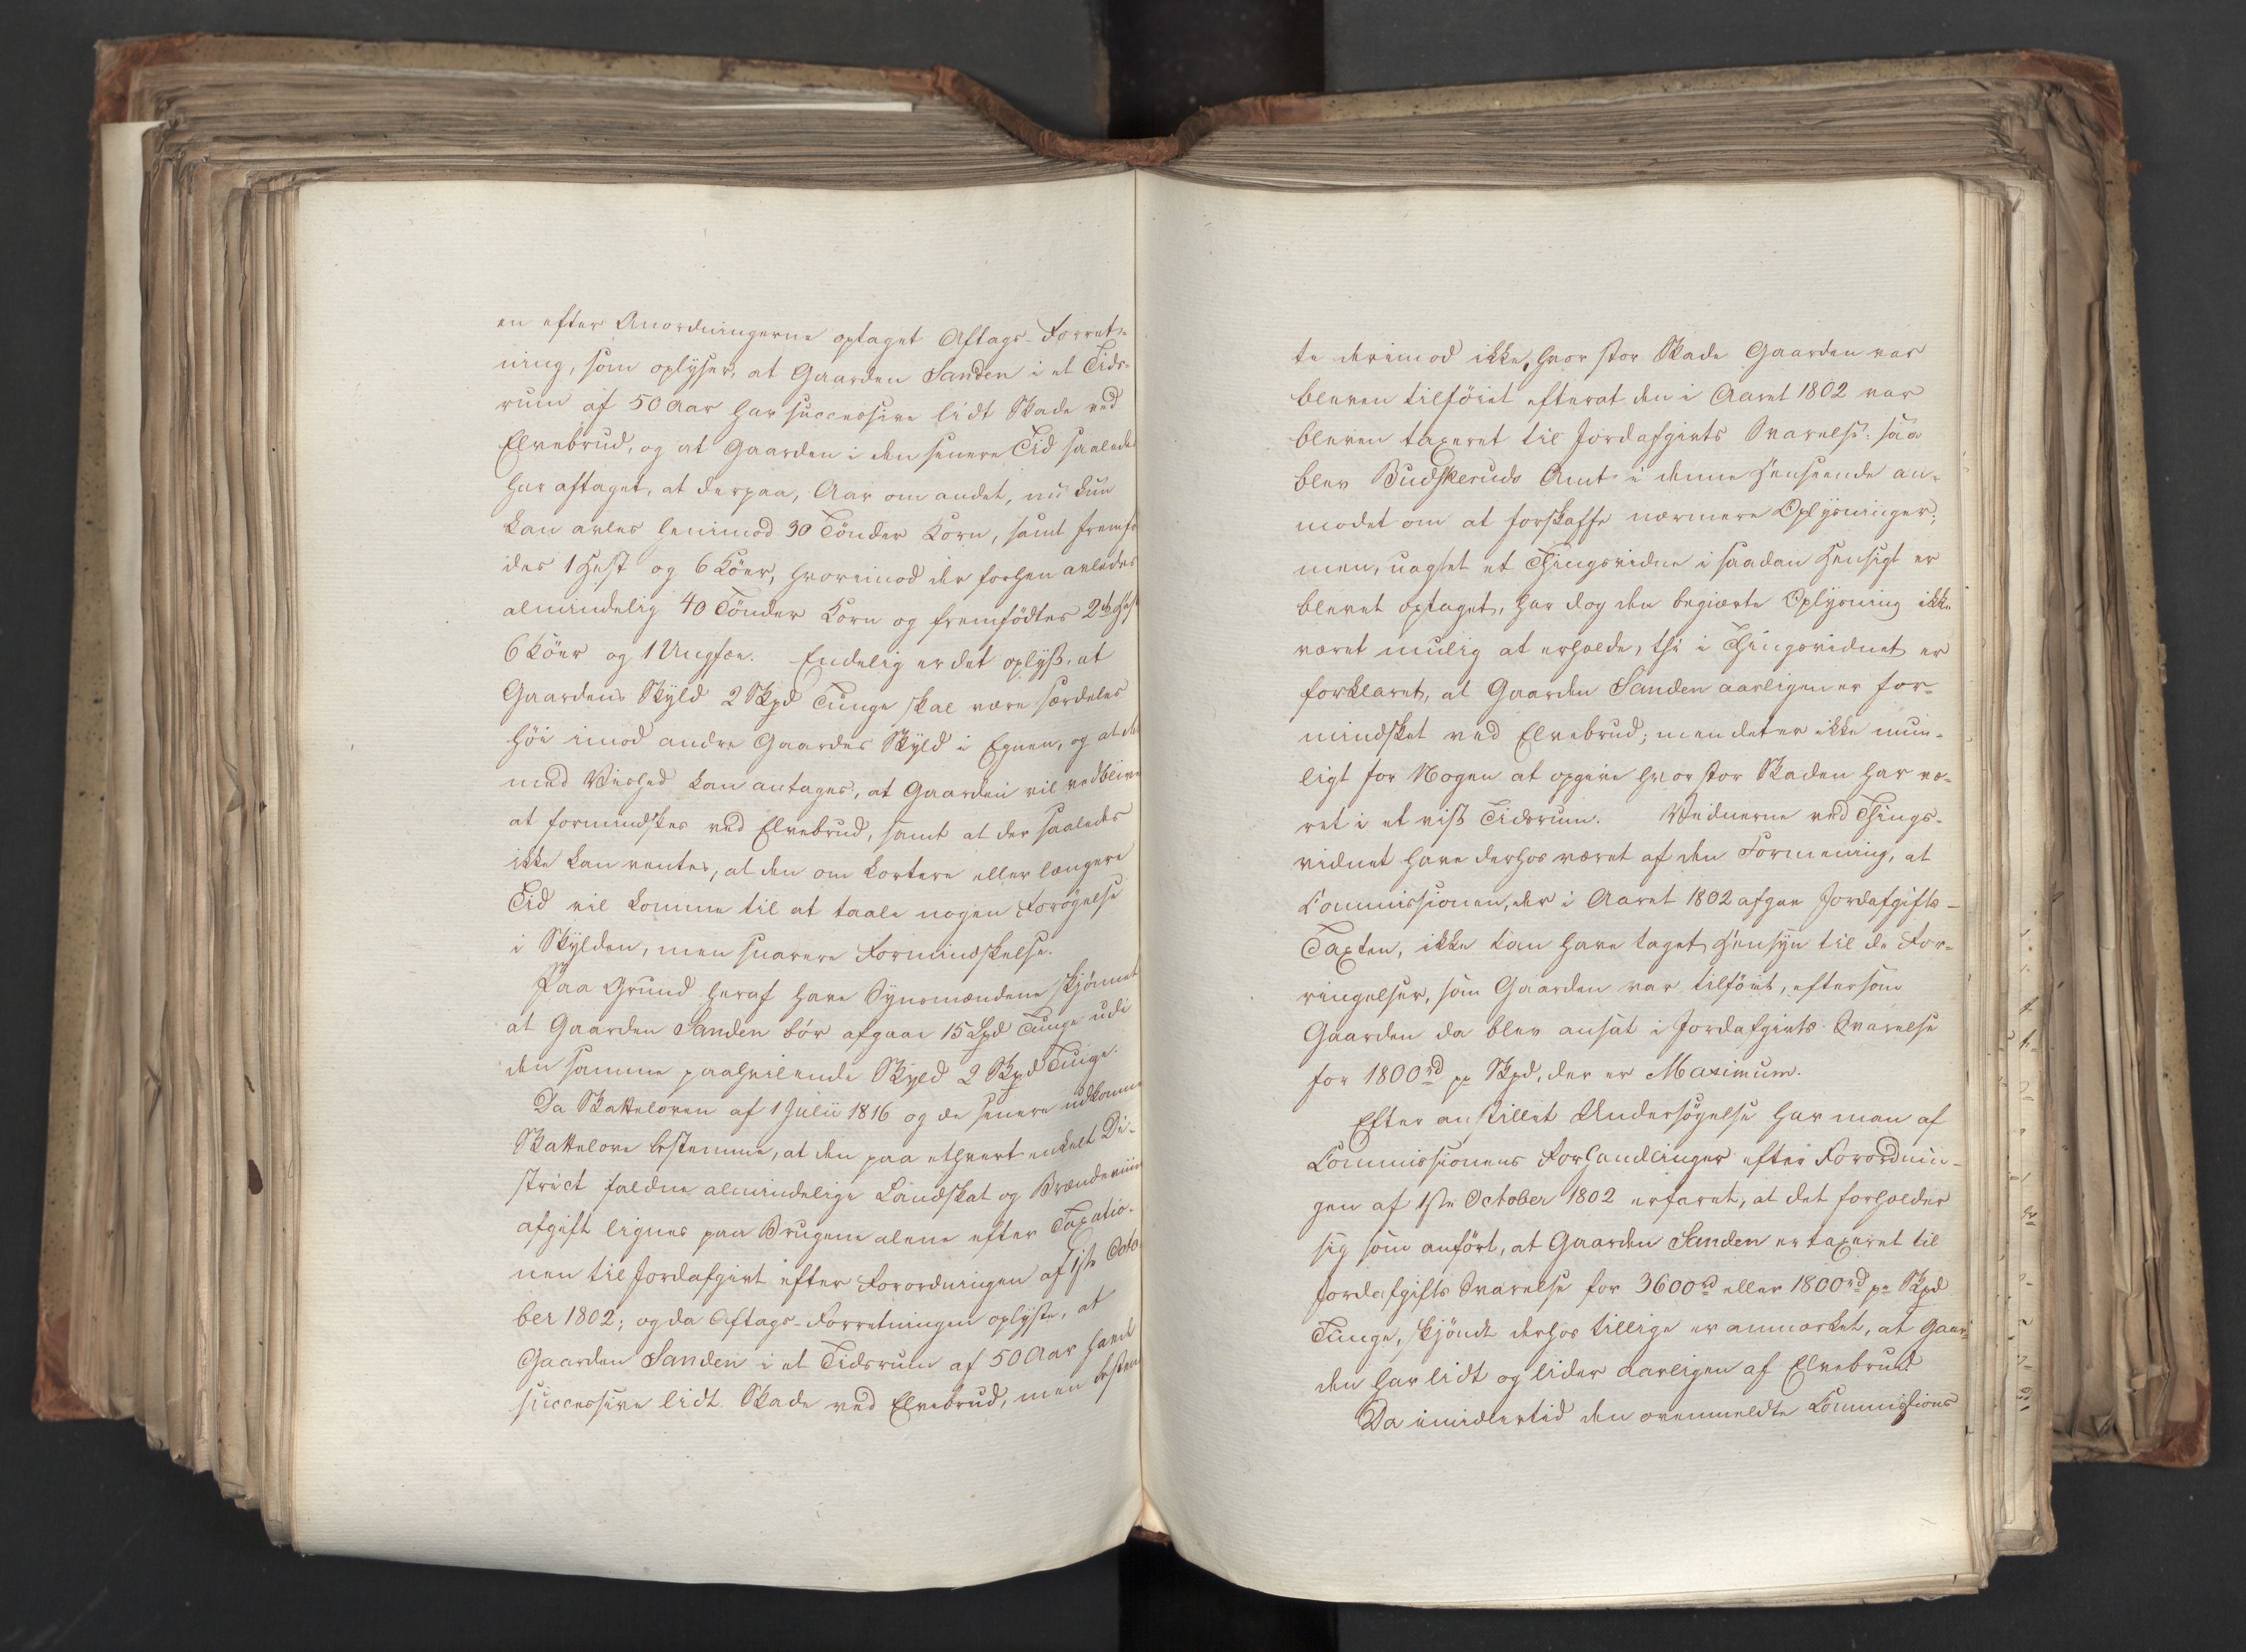 en efter Anordningerne optaget Aftags-Forret-
ning, som oplyser, at Gaarden Sanden i et Tids-
rum af 50 Aar har successive lidt Skade ved
Elvebrud, og at Gaarden i den senere Tid saaledes
har aftaget, at derpaa, Aar om andet, nu kun
kan avles henimod 30 Tönder Korn, samt fremfö
des 1 Hest og 6 Köer, hvorimod der forhen avledes
almindelig 40 Tönder Korn og fremfödtes 2de Heste
6 Köer og 1 Ungfæe. Endelig er det oplyst, at
Gaardens Skyld 2 Skpd Tunge skal være særdeles
höi imod andre Gaardes Skyld i Egnen, og at det
med Vished kan antages, at Gaarden vil vedblive
at formindskes ved Elvebrud, samt at der saaledes
ikke kan ventes, at den om kortere eller længere
Tid vil komme til at taale nogen Forögelse
i Skylden, men snarere Formindskelse.
Paa Grund heraf have Synsmændene skjönnet
at Gaarden Sanden bör afgaae 15 Lpd Tunge udi
den samme paahvilende Skyld 2 Skpd Tunge.
Da Skatteloven af 1 Julii 1816 og de senere udkomne
Skattelove bestemme, at den paa ethvert enkelt Di-
strict faldne almindelige Landskat og Brændeviins
afgift lignes paa Brugene alene efter Taxatio-
nen til Jordafgivt efter Forordningen af 1ste Octo
ber 1802; og da Aftags-Forretningen oplyste, at
Gaarden Sanden i et Tidsrum af 50 Aar havde
successive lidt Skade ved Elvebrud, men bestem
te derimod ikke, hvor stor Skade Gaarden var
bleven tilföiet efterat den i Aaret 1802 var
bleven taxeret til Jordafgivts Svarelse: saa
blev Budskeruds Amt i denne Henseende an-
modet om at forskaffe nærmere Oplysninger;
men, uagtet et Thingsvidne i saadan Hensigt er
blevet optaget, har dog den begjærte Oplysning ikke
været mulig at erholde, thi i Thingsvidnet er
forklaret, at Gaarden Sanden aarligen er for-
mindsket ved Elvebrud; men det er ikke mue-
ligt for Nogen at opgive hvor stor Skaden har væ-
ret i et vist Tidsrum. Vidnerne ved Things-
vidnet have derhos været af den Formening, at
Commissionen, der i Aaret 1802 afgav Jordafgifts-
Taxten, ikke kan have taget Hensyn til de For-
ringelser, som Gaarden var tilföiet, eftersom
Gaarden da blev ansat i Jordafgivts Svarelse
for 1800rd pr Skpd, der er Maximum.
Efter anstillet Undersögelse har man af
Commissionens Forhandlinger efter Forordnin-
gen af 1ste October 1802 erfaret, at det forholder
sig som anfört, at Gaarden Sanden er taxeret til
Jordafgifts Svarelse for 3600rd eller 1800rd pr Skpd
Tunge, skjöndt derhos tillige er anmærket, at Gaar-
den har lidt og lider aarligen af Elvebrud
Da imidlertid den ovenmeldte Commissions